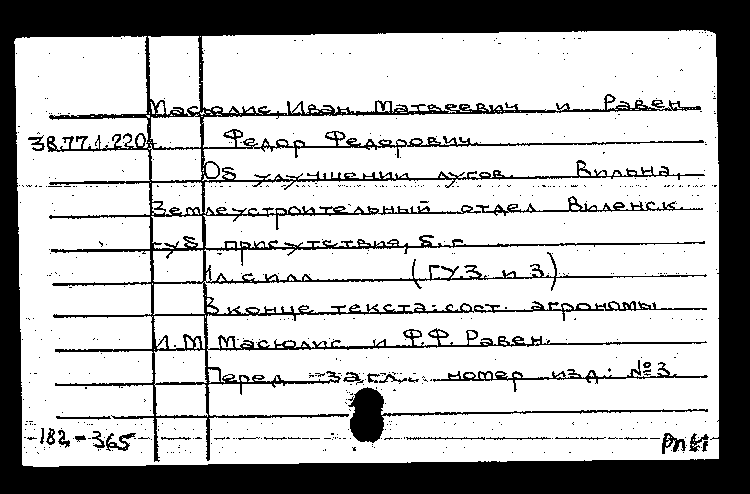 Масюлис, Иван Матвеевич и Равен
38.77.1.220. Федор Федорович.
Об улучшении лугов. Вильна,
Землеустроительный отдел Виленск.
губ. присутствия, б. г.
1 л. с илл. (ГУЗ. и З.)
В конце текста: сост. агрономы
И. М. Масюлис и Ф. Ф. Равен.
Перед загл. номер изд: №3.
182 - 365